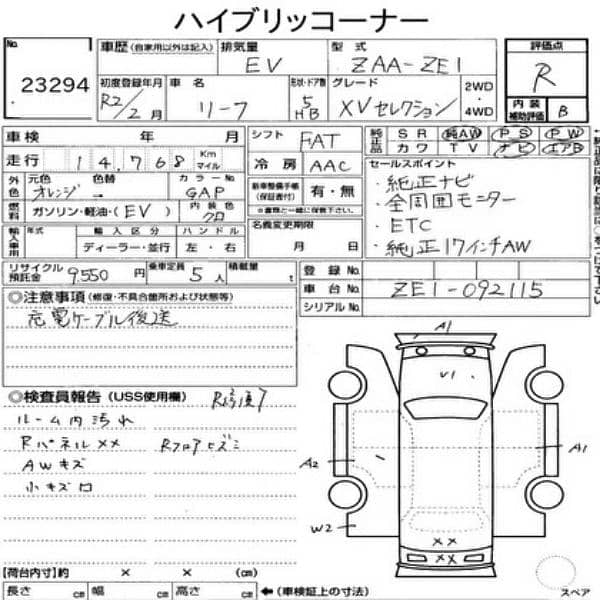 ハイブリッコーナー
No. 23294
車歴 (自家用以外は記入) 排気量 EV 型式 ZAA-ZE1
初度登録年月 R2/2月 車名 リーフ 形状・ドア数 5 HB グレード XVセレクション 2WD・4WD
評価点 R
内装補助評価 B
車検 年 月
シフト FAT
純正品 SR 純AW PS PW
カワ TV ナビ エアB
走行 14,768 Km マイル
冷房 AAC
外色 元色 オレンジ 色替 → カラーNo. GAP
燃料 ガソリン・軽油・(EV) 内装色 クロ
新車整備手帳(保証書付) 有・無
※書類と一緒に保管下さい。
輸入車用 年式 輸入区分 ディーラー・並行 ハンドル 左・右
名義変更期限 月 日
セールスポイント
・純正ナビ
・全周囲モニター
・ETC
・純正17インチAW
リサイクル預託金 9,550円 乗車定員 5人 積載量 t
登録No.
車台No. ZE1-092115
シリアルNo.
◎注意事項 (修復・不具合箇所および状態等)
充電ケーブル後送
◎検査員報告 (USS使用欄) R修復ア
ルーム内汚れ
Rパネル×× Rフロアヒズミ
AWキズ
小キズ凹
A1
V1
A2
A1
W2
××
××
スペア
【荷台内寸】約 × × (cm)
長さ cm 幅 cm 高さ cm ← (車検証上の寸法)